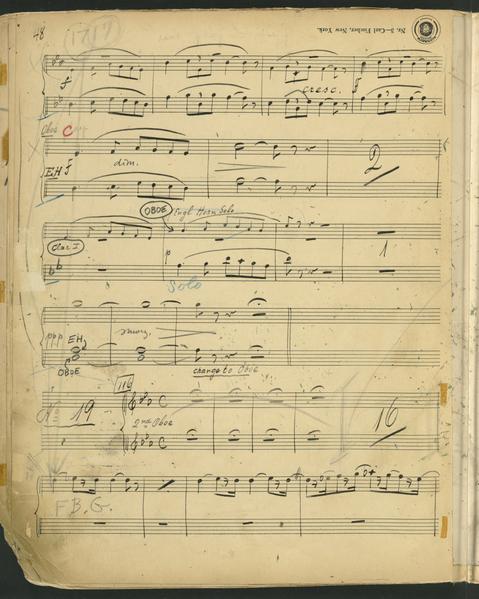 48
1717
Nr. 3—Carl Fischer, New York.
f
f
cresc.
Oboe C
EH f
dim.
2
OBOE
Engl Horn Solo
Clar I
p
1
Solo
ppp EH
morz.
OBOE
change to Oboe
116
C
19
2nd Oboe
16
C
F.B.G.